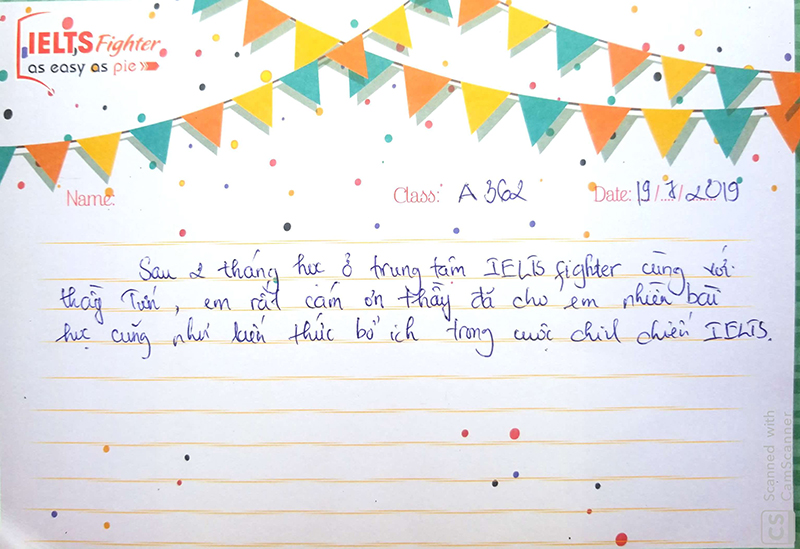 IELTS Fighter
as easy as pie
Name:
Class: A 362
Date: 19/7/2019
Sau 2 tháng học ở trung tâm IELTS fighter cùng với
thầy Tuấn, em rất cảm ơn thầy đã cho em nhiều bài
học cũng như kiến thức bổ ích trong cuộc chinh chiến IELTS.
CS
Scanned with
CamScanner